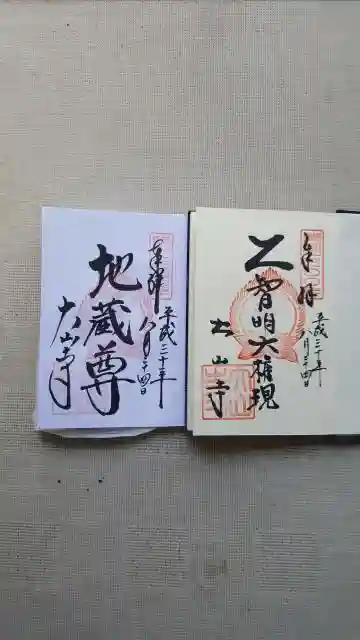 奉拝
平成三十年
八月二十四日
地蔵尊
大山寺
奉拝
平成三十年
八月二十四日
智明大権現
大山寺